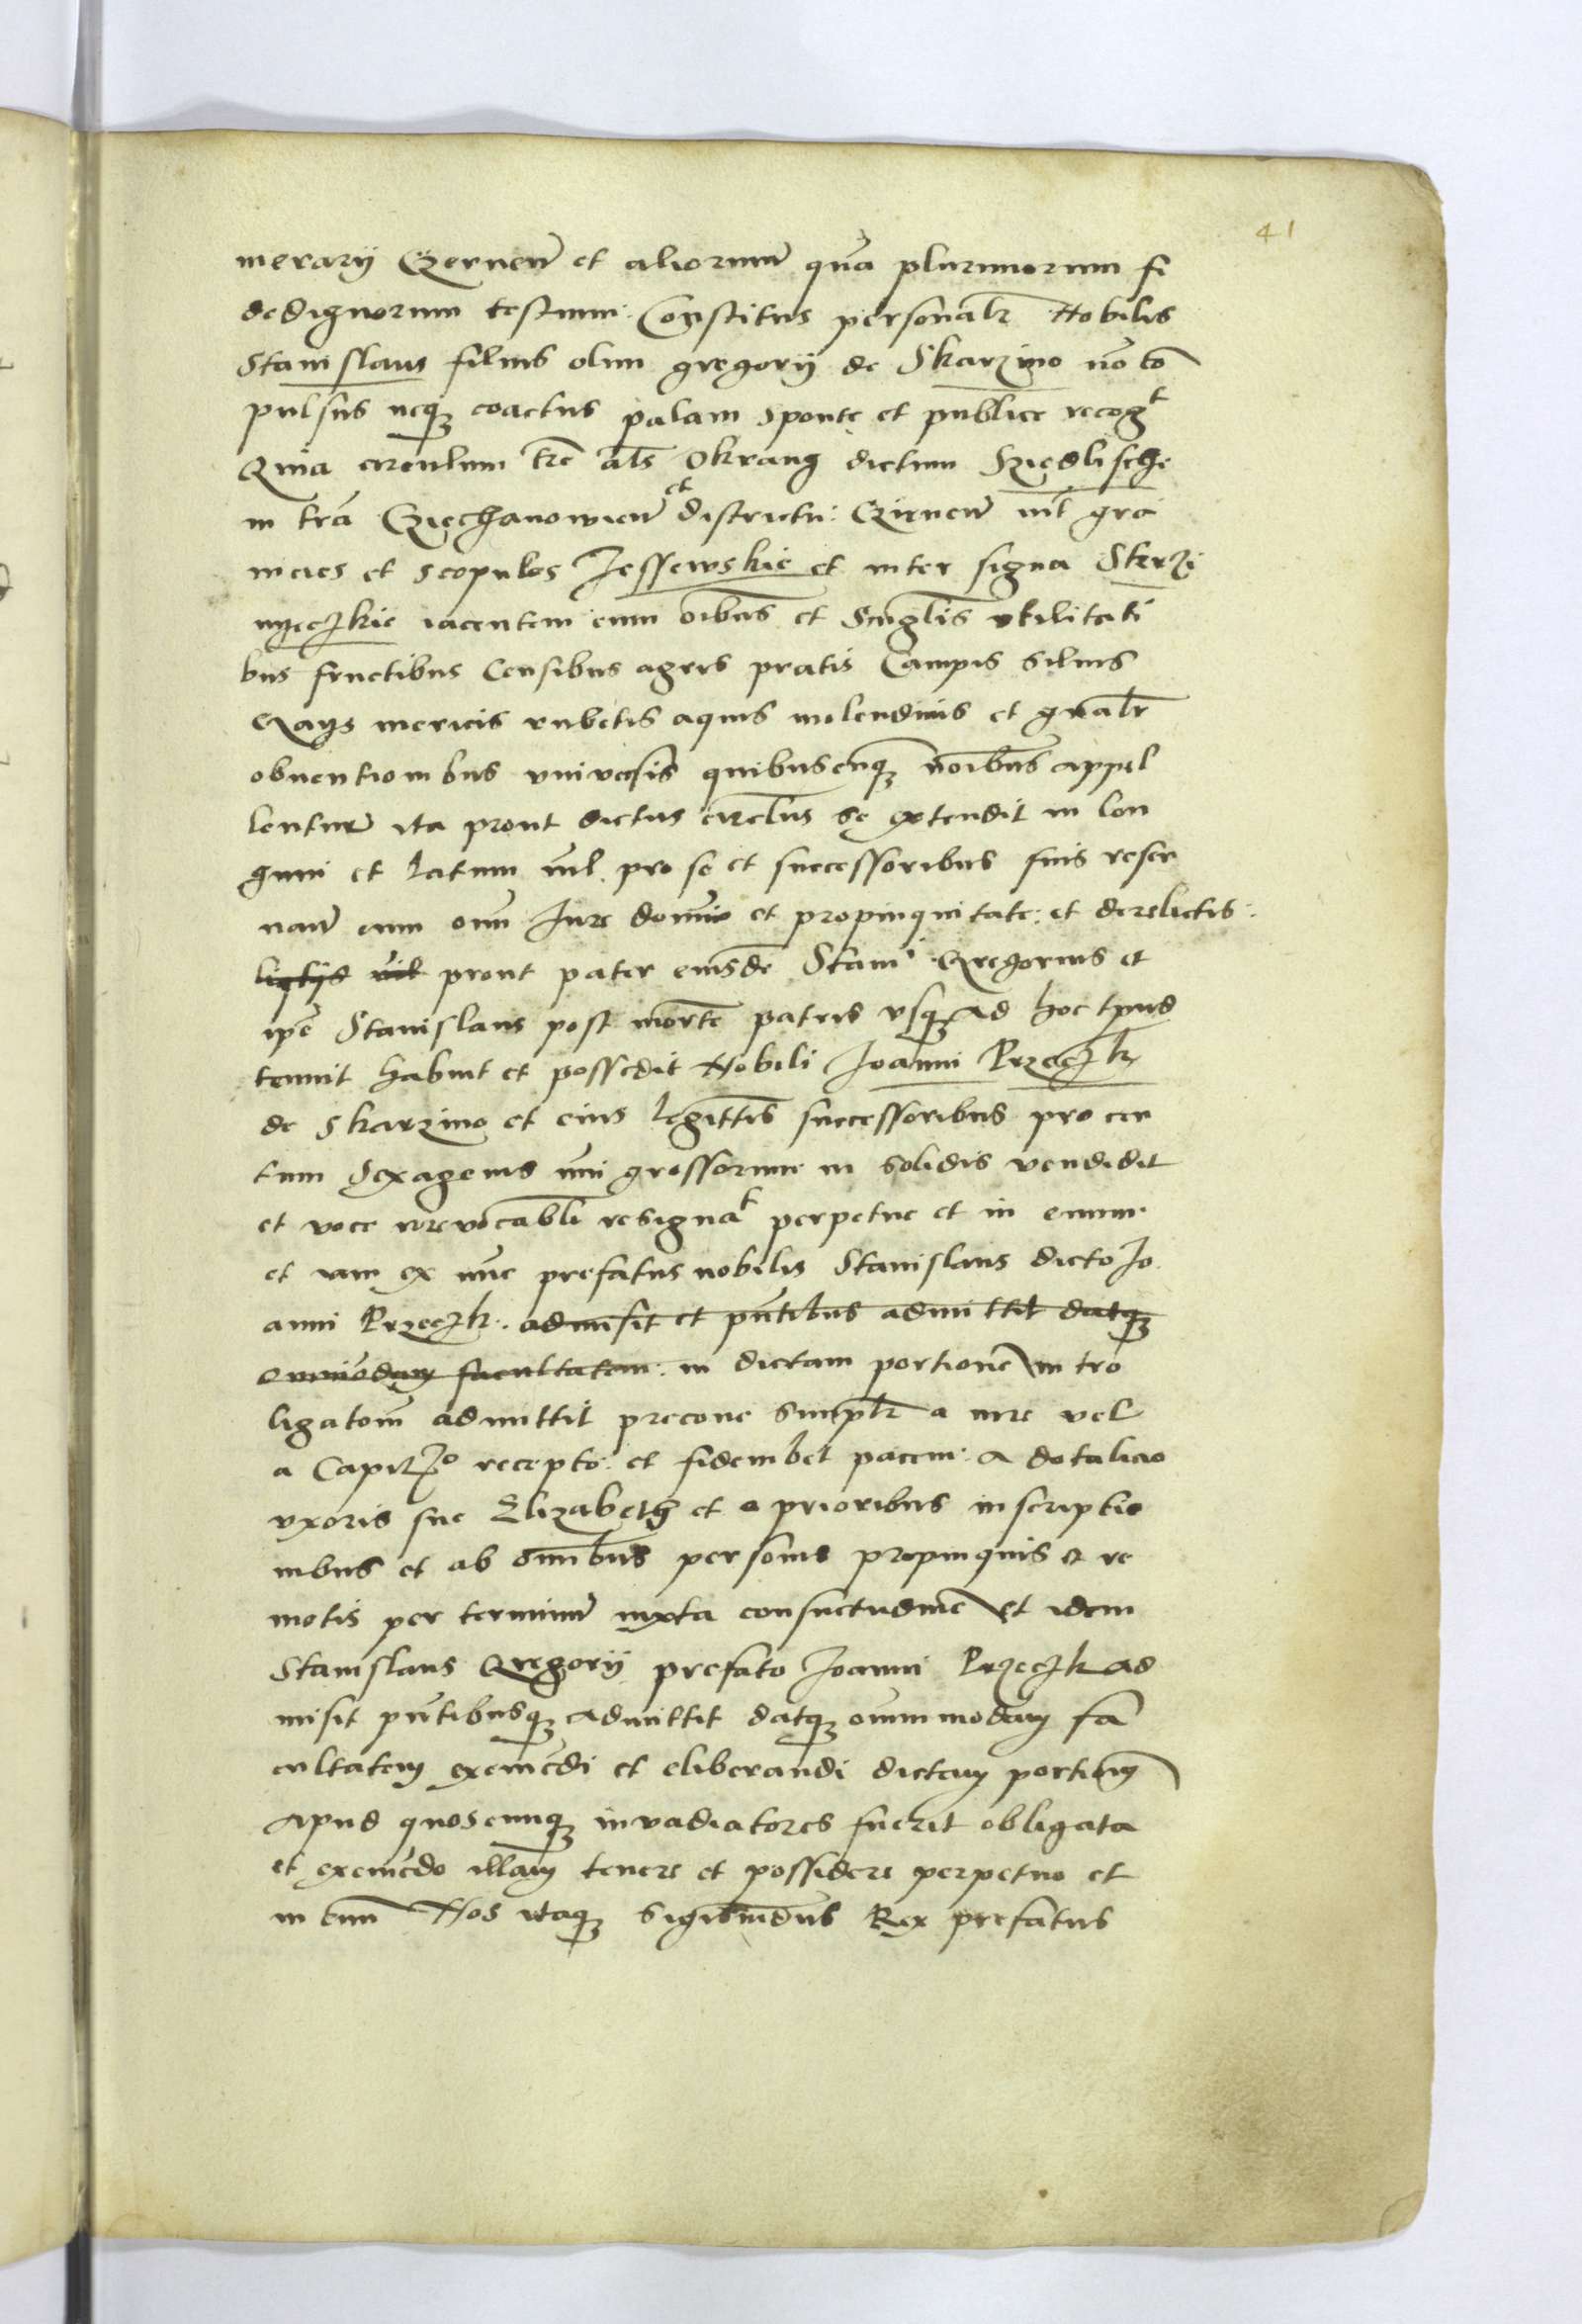 41
merarij Czernen̄ et aliorum̄ quā plurimorum fi
dedignorum testium: Constitus personalr̄ Nobilis
Stanislaus filius olim gregorij de Skarzino nō cō
pulsus neqꝫ coactus palam sponte et publice recogt
Quia circulum tre als Okrang dictum Sziedlische
in trā Cziechanowien̄ et districtu: Czirnen̄ int̄ gra
nicies et scopulos Jessewskie et inter signa Skrzi
nyeczkie iacentem cum oībus et Singlis vtilitati
bus fructibus Censibus agris pratis Campis siluis
Gays mericis rubetis aquis molendinis et gnalr̄
obuentionibus vniuersis quibuscunqꝫ noībus appel
lentur̄ ita prout dictus circlus se extendit in lon
gum et latum nil pro se et successoribus suis reser
uan̄ cum om̄i Jure dominio et propinquitate: et derelictis:
lictijs nil prout pater eiusdē Stani Gregorius et
ipē Stanislaus post mortē patris vsqꝫ ad hoc tpus
tenuit habuit et possedit Nobili Joanni Przeczk
de Skarzino et eius legittīs successoribus pro cen
tum Sexagenis nūi grossorum in solidis vendidit
et voce irreuocabli resignat perpetue et in euum
et iam ex nunc prefatus nobilis Stanislaus dicto Jo
anni Przeczk. admisit et pn̄tibus admittit datqꝫ
omnimodam facultatem: in dictam portionē intro
ligatom̄ admittit precone simplr̄ a iure vel
a Capitō recepto: et fideiubet pacem: a dotalicio
vxoris sue Elizabeth et a prioribus inscriptio
nibus et ab omībus personis propinquis et re
motis per terminum̄ iuxta consuetudinē et idem
Stanislaus Gregorij prefato Joanni Przeczk ad
misit pn̄tibusqꝫ admittit datqꝫ omnimodam fa
cultatem exemēdi et eliberandi dictam portionem
apud quoscunqꝫ inuadiatores fuerit obligata
et exemēdo illam tenere et possidere perpetuo et
in euū Nos itaqꝫ Sigismūdus Rex prefatus